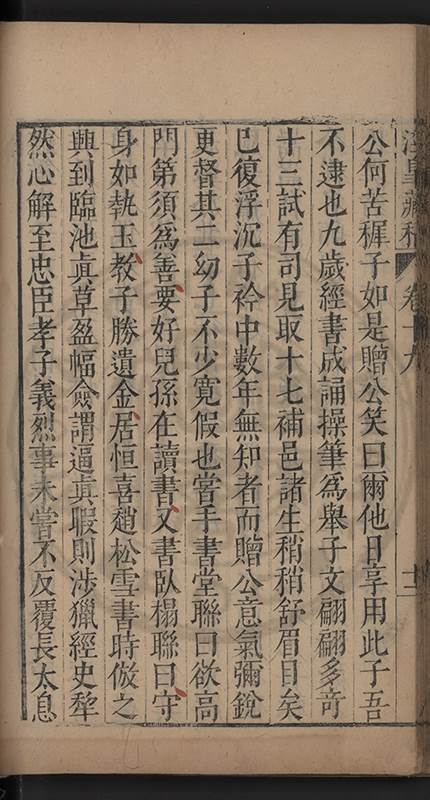 泾臯藏稿 卷十九 十二
公何苦穉子如是贈公笑曰爾他日享用此子吾
不逮也九歲經書成誦操筆為舉子文翩翩多竒
十三試有司見取十七補邑諸生稍稍舒眉目矣
已復浮沉子衿中數年無知者而贈公意氣彌銳
更督其二幼子不少寬假也嘗手書堂聯曰欲高
門第須為善要好兒孫在讀書又書臥榻聯曰守
身如執玉教子勝遺金居恒喜趙松雪書時倣之
興到臨池眞草盈幅僉謂逼眞暇則涉獵經史犂
然心解至忠臣孝子義烈事未嘗不反覆長太息